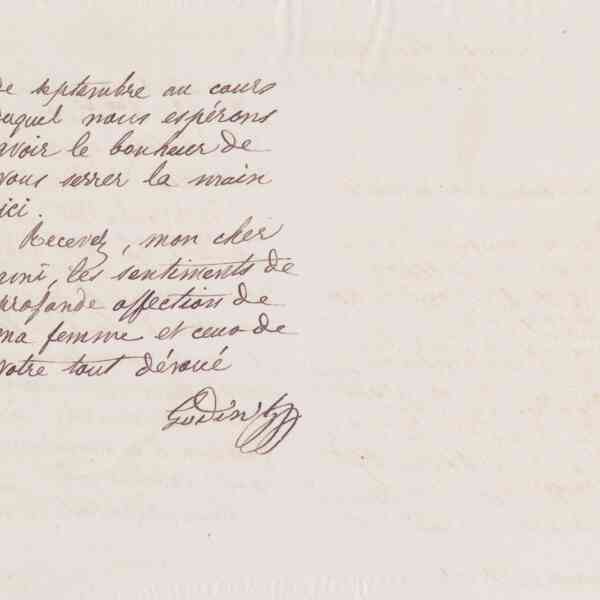 de septembre au cours
duquel nous espérons
avoir le bonheur de
vous serrer la main
ici.
Recevez, mon cher
ami, les sentiments de
profonde affection de
ma femme et ceux de
votre tout dévoué
Godin